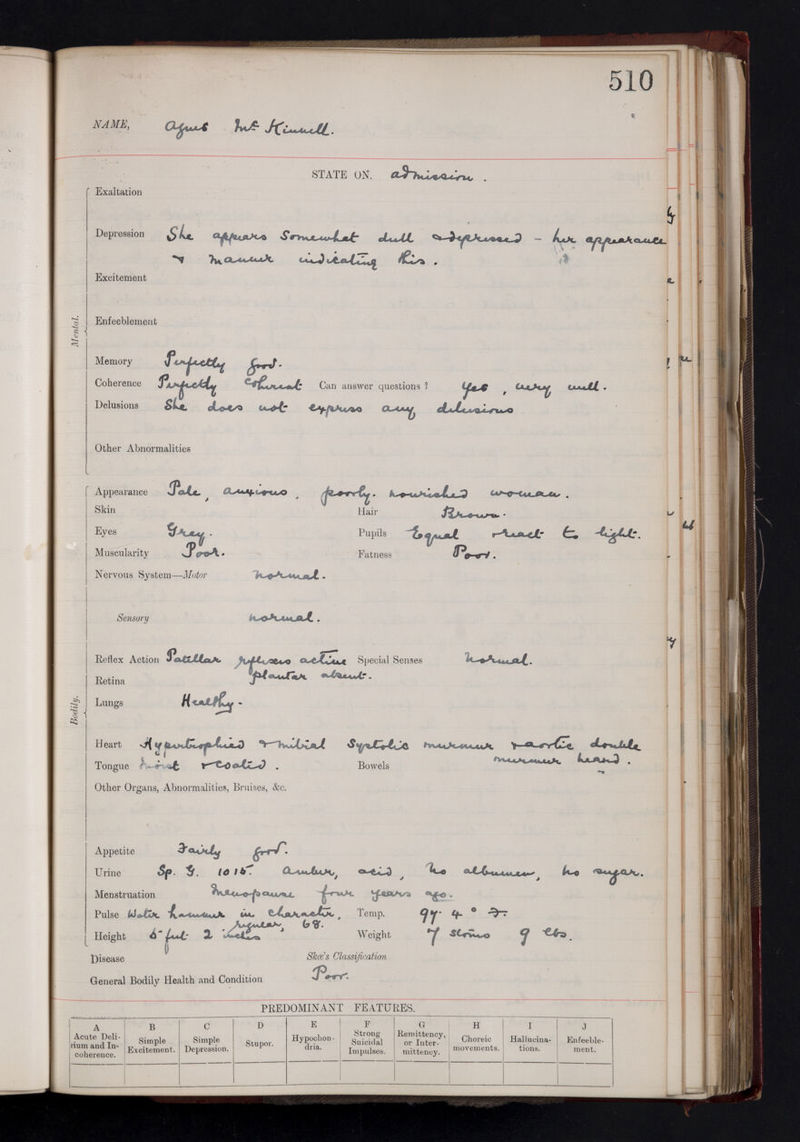 510
NAME, Agnes McKinnell.
STATE ON. admission.
Exaltation
Depression She appears somewhat dull & depressed - her appearance
& manner indicating this.
Excitement
Mental.
Enfeeblement
Memory Perfectly good.
Coherence Perfectly coherent Can answer questions? Yes, very well.
Delusions She does not express any delusions
Other Abnormalities
Appearance Pale, anxious, poorly nourished woman.
Skin Hair Brown.
Eyes Grey. Pupils Equal & react to light.
Muscularity Poor. Fatness Poor.
Nervous System—Motor Normal.
Sensory Normal.
Reflex Action Patellar reflexes active Special Senses Normal.
Retina plantar absent.
Bodily.
Lungs Healthy.
Heart Hypertrophied & mitral systolic murmur & aortic double
Tongue moist & coated. Bowels murmur heard.
Other Organs, Abnormalities, Bruises, &c.
Appetite Fairly good.
Urine Sp. G. 1015. Amber, acid, no albumen, no sugar.
Menstruation Menopause four years ago.
Pulse Water hammer in character, Temp. 97.4° F.
regular, 68.
Height 5 feet 2 inches Weight 7 stones 9 lbs.
Disease Skae's Classification
General Bodily Health and Condition Poor.
PREDOMINANT FEATURES.
A B C D E F G H I J
Acute Delirium and Incoherence. Simple Excitement. Simple Depression. Stupor. Hypochondria. Strong Suicidal Impulses. Remittency, or Intermittency. Choreic movements. Hallucinations. Enfeeblement.